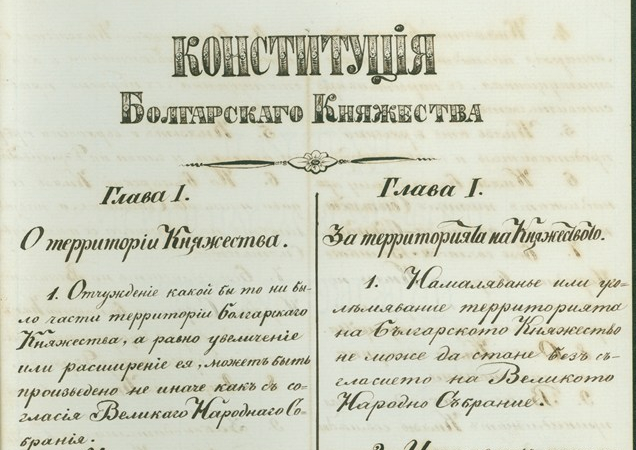 КОНСТИТУЦІЯ
БОЛГАРСКАГО КНЯЖЕСТВА
Глава I.
О территоріи Княжества.
1. Отчужденіе какой бы то ни бы-
ло части территоріи Болгарскаго
Княжества, а равно увеличеніе
или расширеніе ея, можетъ быть
произведено не иначе какъ съ со-
гласія Великаго Народнаго Со-
бранія.
Глава I.
За территорията на Княжеството.
1. Намаляванье или уго-
лѣмявание территорията
на Българското Княжество
не може да стане безъ съ-
гласието на Великото
Народно Събрание.